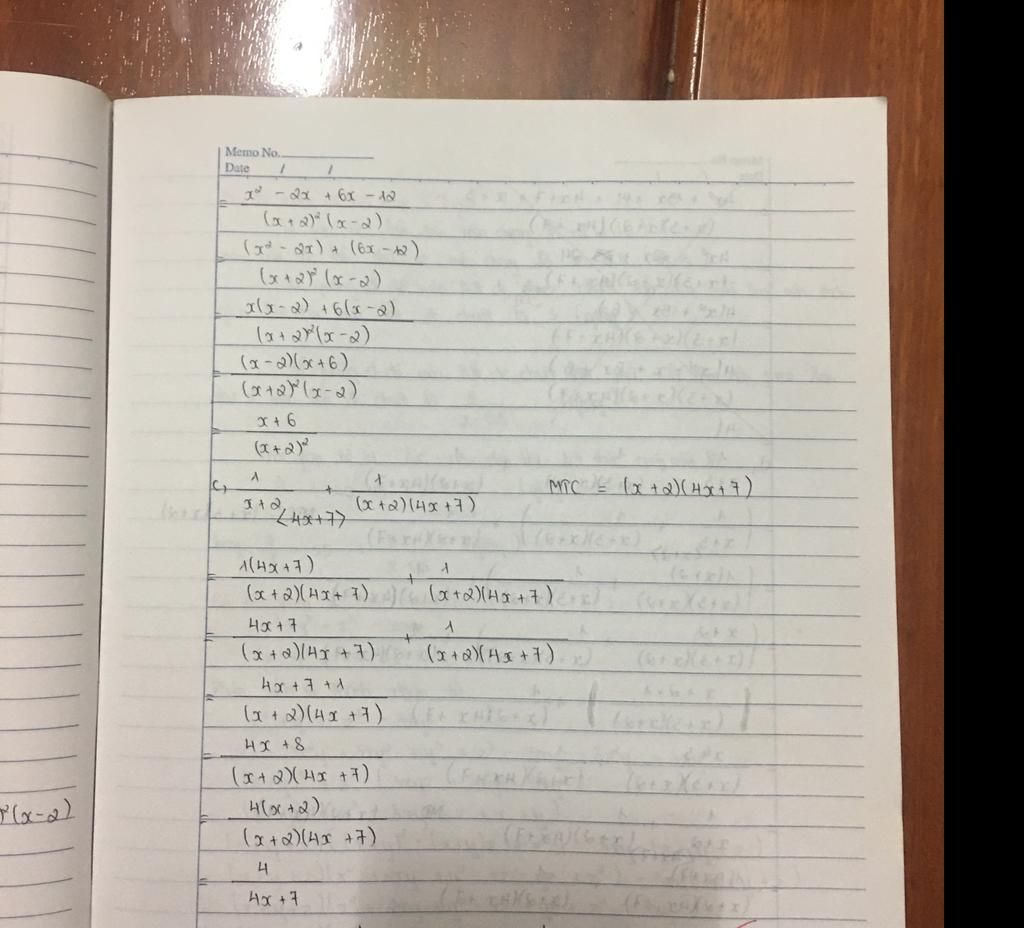 Memo No.
Date / /
= x² - 2x + 6x - 12 / (x+2)²(x-2)
= (x² - 2x) + (6x - 12) / (x+2)²(x-2)
= x(x-2) + 6(x-2) / (x+2)²(x-2)
= (x-2)(x+6) / (x+2)²(x-2)
= x+6 / (x+2)²
c, 1 / x+2 + 1 / (x+2)(4x+7) MTC = (x+2)(4x+7)
<4x+7>
= 1(4x+7) / (x+2)(4x+7) + 1 / (x+2)(4x+7)
= 4x+7 / (x+2)(4x+7) + 1 / (x+2)(4x+7)
= 4x+7+1 / (x+2)(4x+7)
= 4x+8 / (x+2)(4x+7)
²(x-2)
= 4(x+2) / (x+2)(4x+7)
= 4 / 4x+7